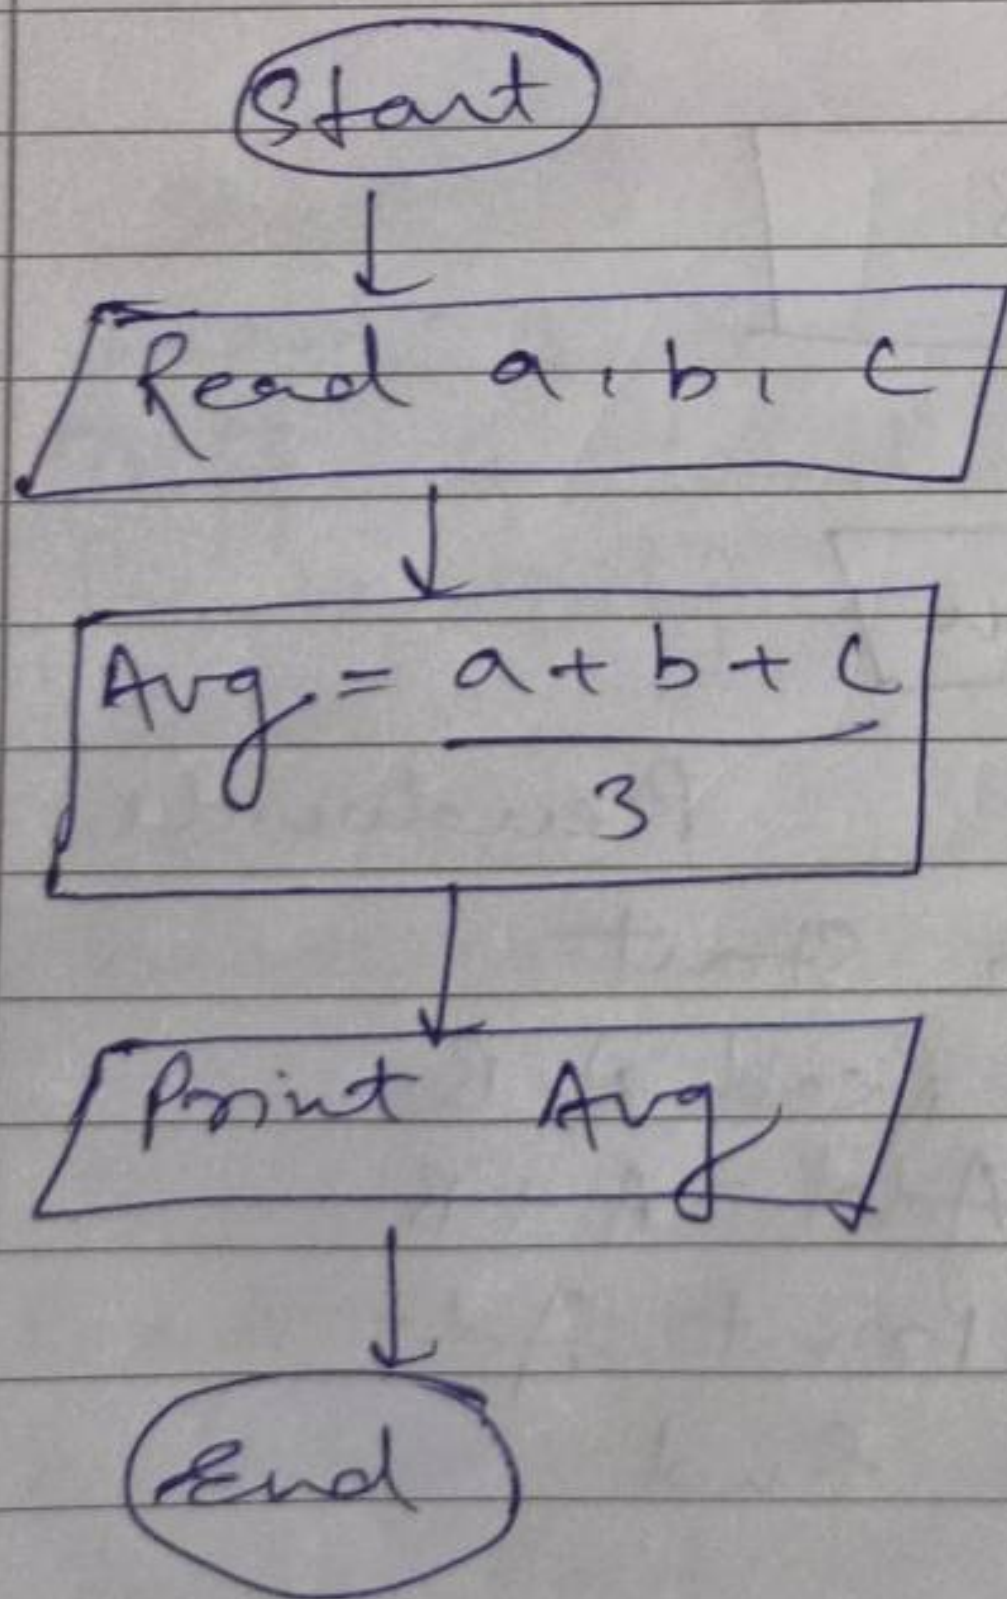 Start
Read a, b, c
Avg = a + b + c
3
Print Avg
End